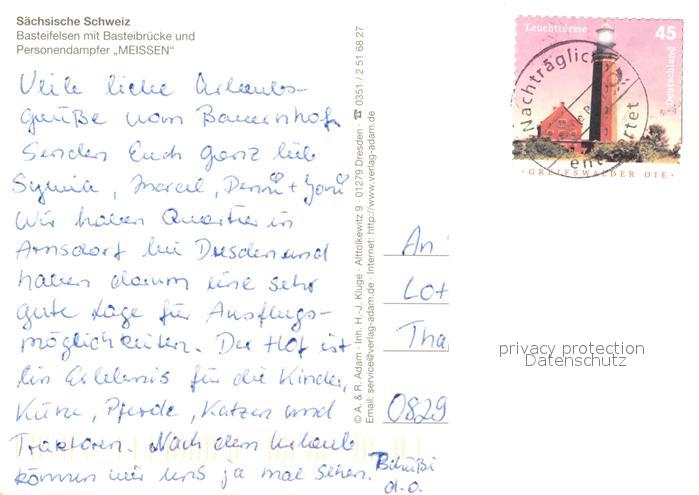 Sächsische Schweiz
Basteifelsen mit Basteibrücke und
Personendampfer „MEISSEN"
Viele liebe Urlaubs-
grüße vom Bauernhof
senden Euch ganz lieb
Sylvia, Marcel,
Wir haben Quartier in
Arnsdorf bei Dresden und
haben darum eine sehr
gute Lage für Ausflugs-
möglichkeiten. Der Hof ist
ein Erlebnis für die Kinder,
Kühe, Pferde, Katzen und
Traktoren. Nach dem Urlaub
können wir uns ja mal sehen.
d.o.
© A. & R. Adam · Inh. H.-J. Kluge · Alttolkewitz 9 · 01279 Dresden · ☎ 0351 / 2 51 68 27
Email: service@verlag-adam.de · Internet: http://www.verlag-adam.de
Leuchttürme 45
Deutschland
Nachträglich
entwertet
· GREIFSWALDER OIE ·
An
Lot
Tha
0829
privacy protection
Datenschutz